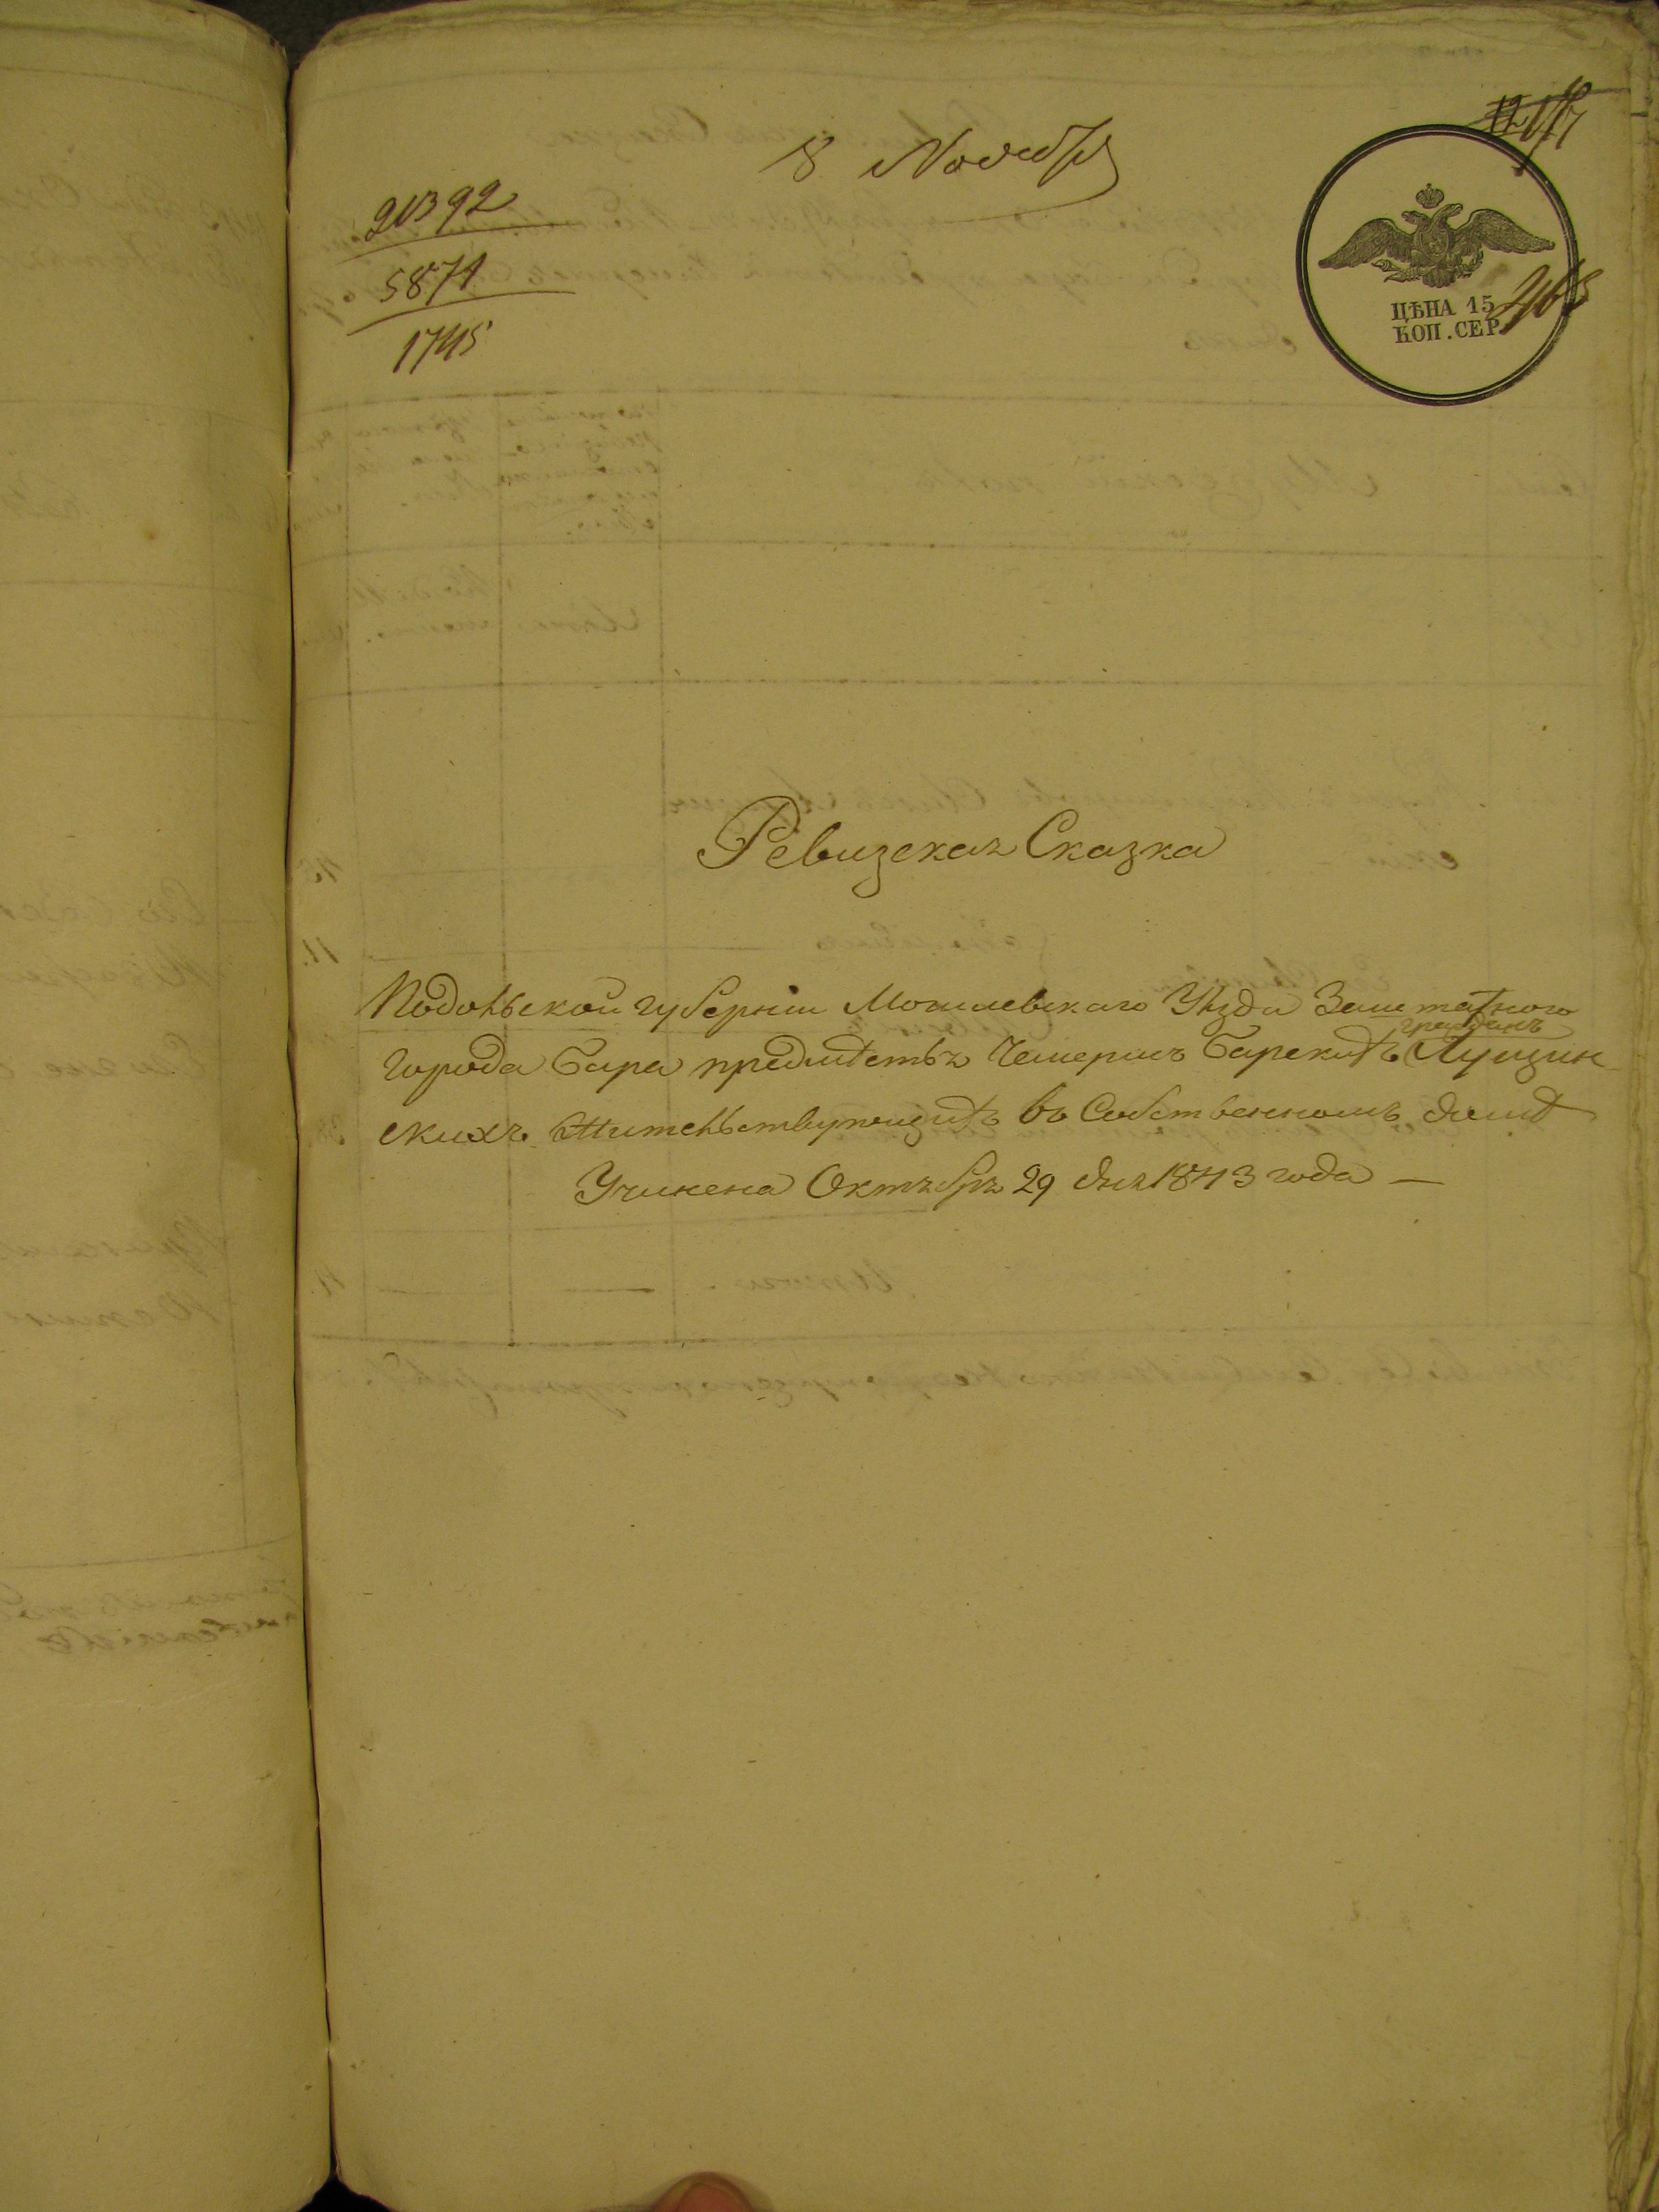 8 Ноября
20392
5874
1745
ЦѢНА 15
КОП. СЕР.
Ревизская Сказка
Подольской губерніи Могилевскаго Уѣзда Заштатного
гражданъ
города Бара предмѣстья Чемерисъ Барскихъ Лущин
скихъ Жительствующихъ въ Собственномъ домѣ
Учинена Октября 29 дня 1843 года —